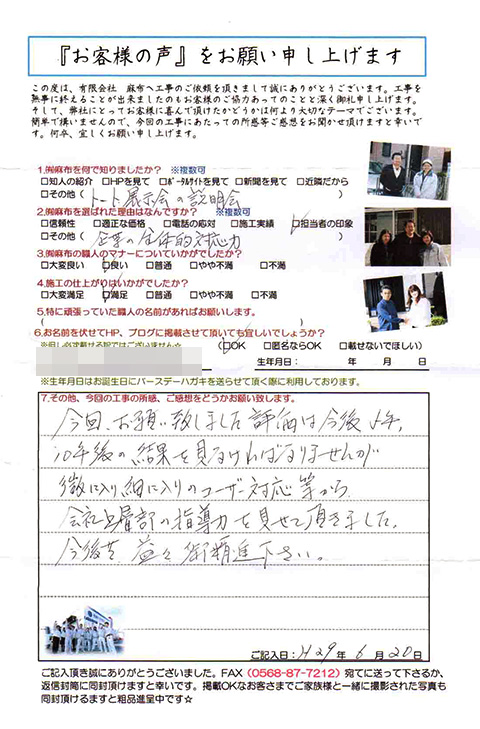 『お客様の声』をお願い申し上げます
この度は、有限会社 麻布へ工事のご依頼を頂きまして誠にありがとうございます。工事を
無事に終えることが出来ましたのもお客様のご協力あってのことと深く御礼申し上げます。
そして、弊社にとってお客様に喜んで頂けたかどうかは何より大切なテーマでございます。
簡単で構いませんので、今回の工事にあたっての所感等ご感想をお聞かせ頂けますと幸いで
す。何卒、宜しくお願い申し上げます。
1.㈱麻布を何で知りましたか? ※複数可
□知人の紹介 □HPを見て □ポータルサイトを見て □新聞を見て □近隣だから
□その他( トート展示会の説明会 )
2.㈱麻布を選ばれた理由はなんですか? ※複数可
□信頼性 □適正な価格 □電話の応対 □施工実績 □担当者の印象
□その他( 企業の全体的対応力 )
3.㈱麻布の職人のマナーについていかがでしたか?
□大変良い □良い □普通 □やや不満 □不満
4.施工の仕上がりはいかがでしたか?
□大変満足 □満足 □普通 □やや不満 □不満
5.特に頑張っていた職人の名前があればお願いします。
( )
6.お名前を伏せてHP、ブログに掲載させて頂いても宜しいでしょうか?
※但し必ず載せる訳ではございません☆ (□OK □匿名ならOK □載せないでほしい)
生年月日: 年 月 日
※生年月日はお誕生日にバースデーハガキを送らせて頂く際に利用しております。
7.その他、今回の工事の所感、ご感想をどうかお願い致します。
今回、お願い致しました評価は今後5年,
10年後の結果を見なければなりませんが
微に入り細に入りのユーザー対応等から
会社上層部の指導力を見せて頂きました。
今後共 益々御精進下さい。
ご記入日:H29年 6月 20日
ご記入頂き誠にありがとうございました。FAX(0568-87-7212)宛てに送って下さるか、
返信封筒に同封頂けますと幸いです。掲載OKなお客さまでご家族様と一緒に撮影された写真も
同封頂けるますと粗品進呈中です☆